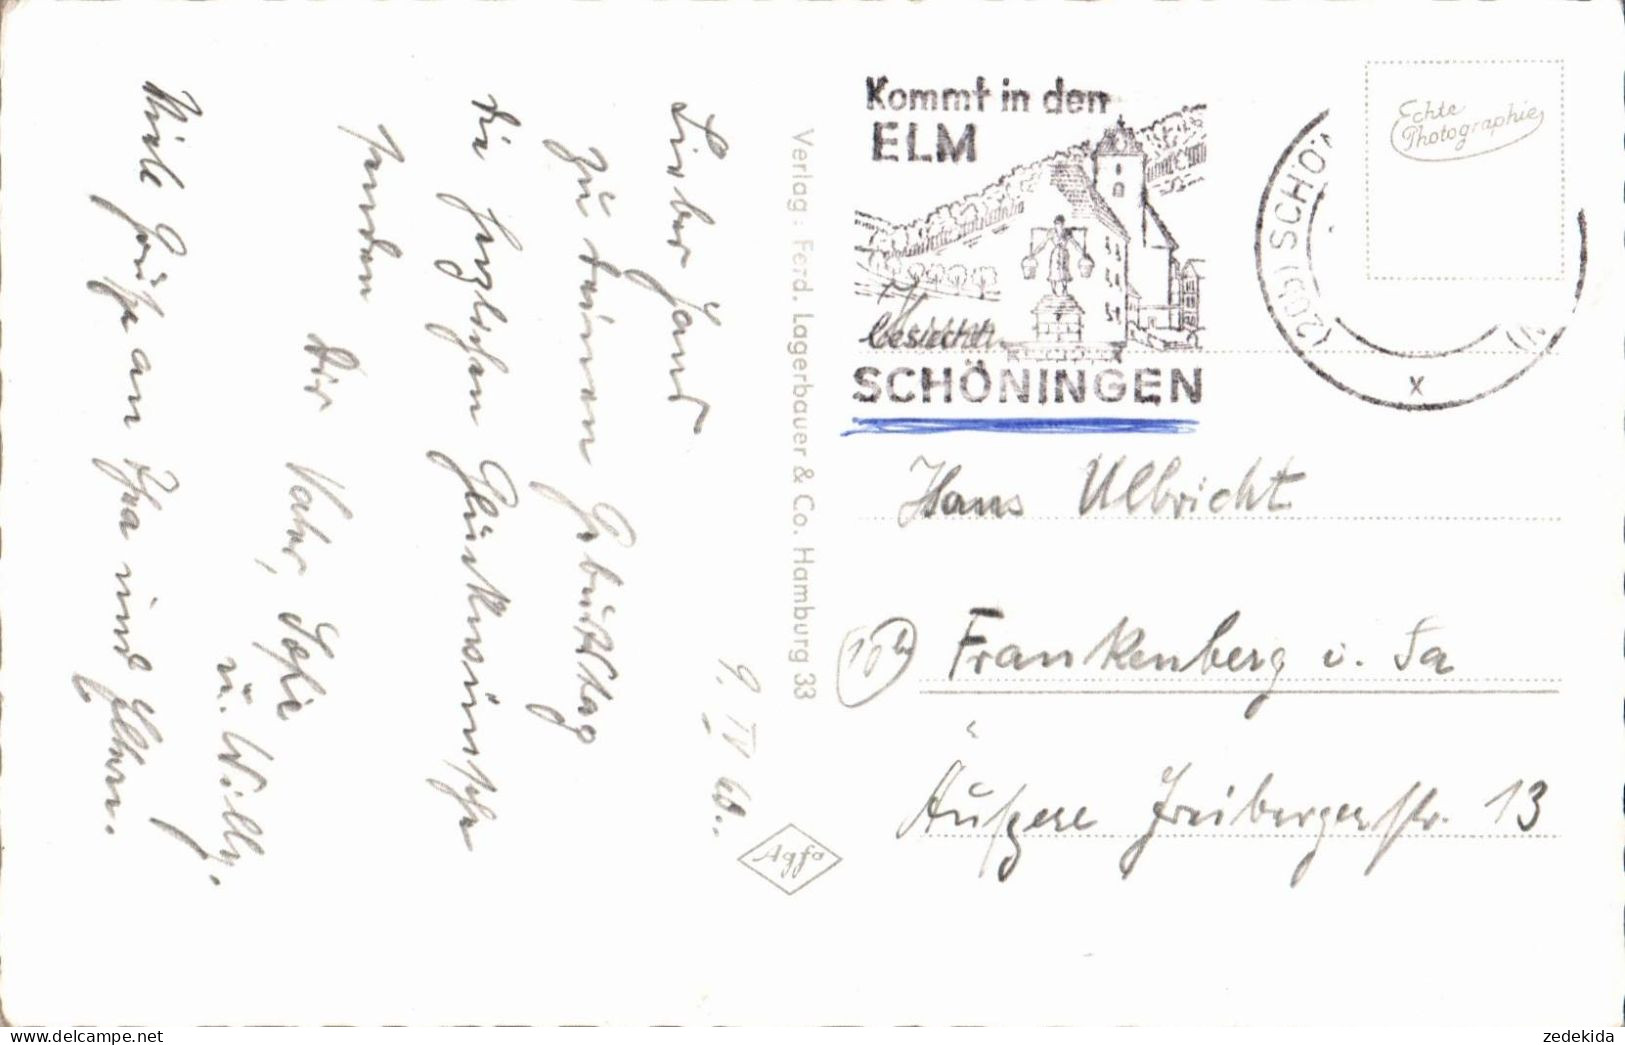 9. IV 60.
Lieber Hans
zu deinem Geburtstag
die herzlichen Glückwünsche
senden
Dir Vater, Sofie
u. Willy.
Viele Grüße an und Eltern.
Verlag: Ferd. Lagerbauer & Co. Hamburg 33
Agfa
Kommt in den
ELM
besichtet
SCHÖNINGEN
(20b) SCHÖN
x
Echte
Photographie
Hans Ulbricht
10b Frankenberg i. Sa
Äußere Freibergerstr. 13
zedekida